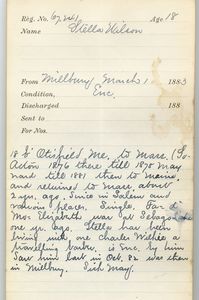 Reg. No. 67,241 Age 18
Name Stella Wilson
From Millbury March 1 1883
Condition, Enc.
Discharged 188
Sent to
For Nos.
18 b' Otisfield Me. to Mass. (So.
Acton 1876 then till 1878 May
nard till 1881 then to Maine,
and returned to Mass. about
2 yrs. ago. Since in Salem and
various places. Single. Fa.
Mo. Elizabeth was at Sebago
one yr. ago. Stella has been
living with one Charles a
travelling barber, is Enc. by him
Saw him last in Oct. 82 was then
in Millbury. Disch May.